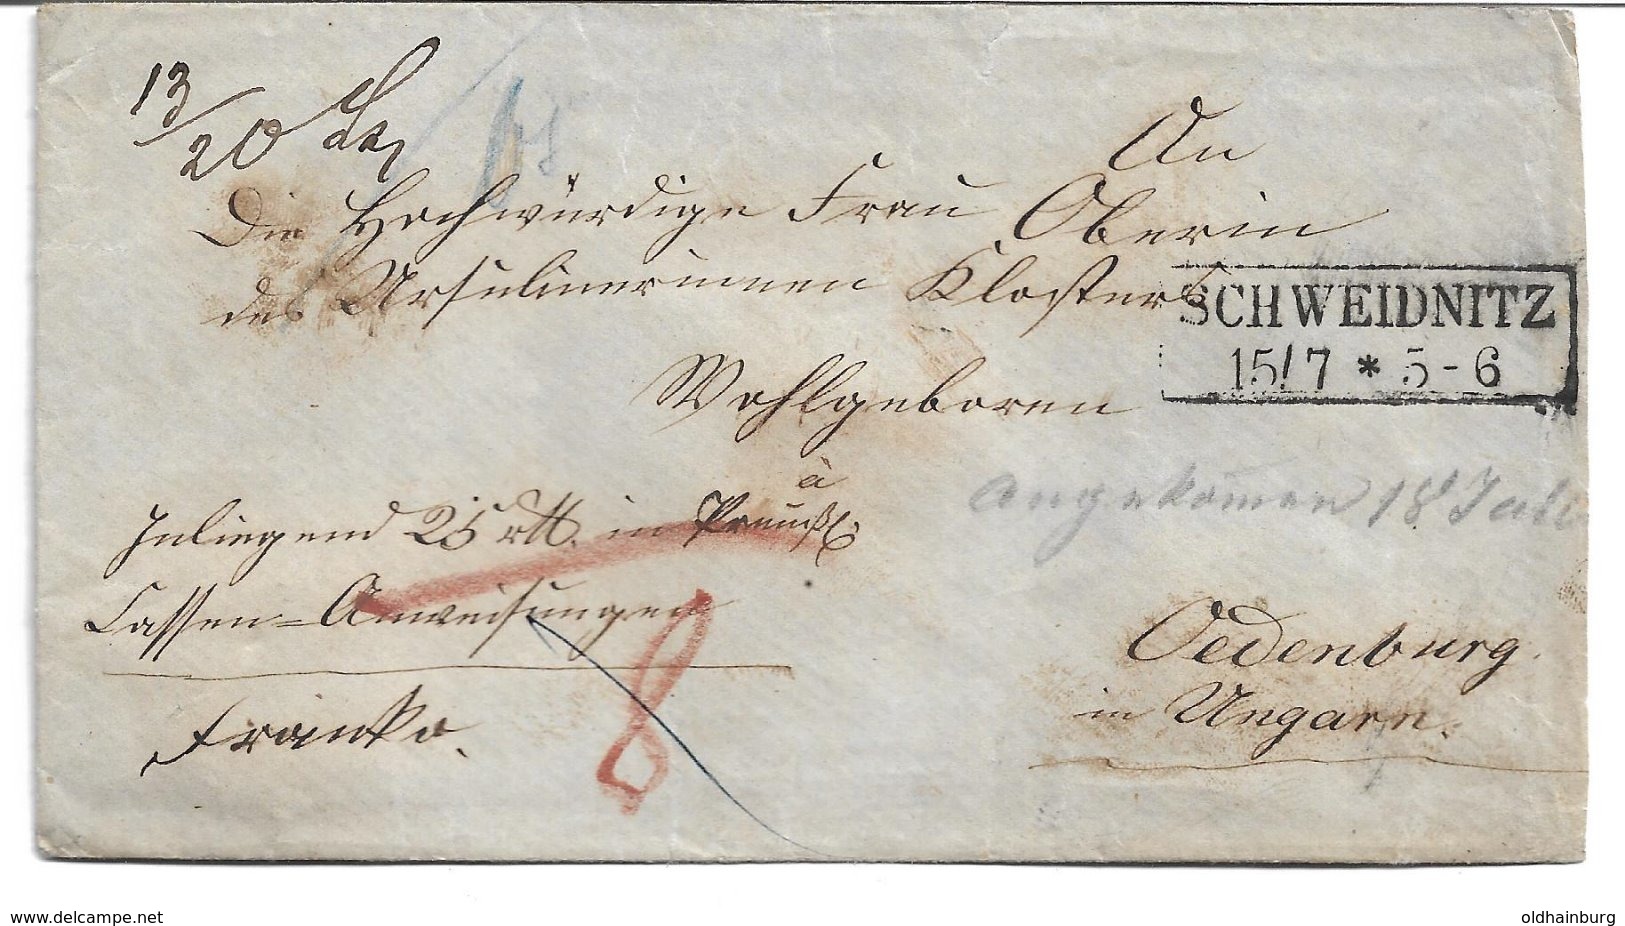 13/20
An
Die Hochwürdige Frau Oberin
des Ursulinerinnen Klosters
SCHWEIDNITZ
15/7 * 5-6
Wohlgeboren
à
Inliegend 25 rtl. in Preuß.
Angekommen 18t Juli
Cassen=Anweisungen
8
Oedenburg
in Ungarn.
Franko.
www.delcampe.net
oldhainburg